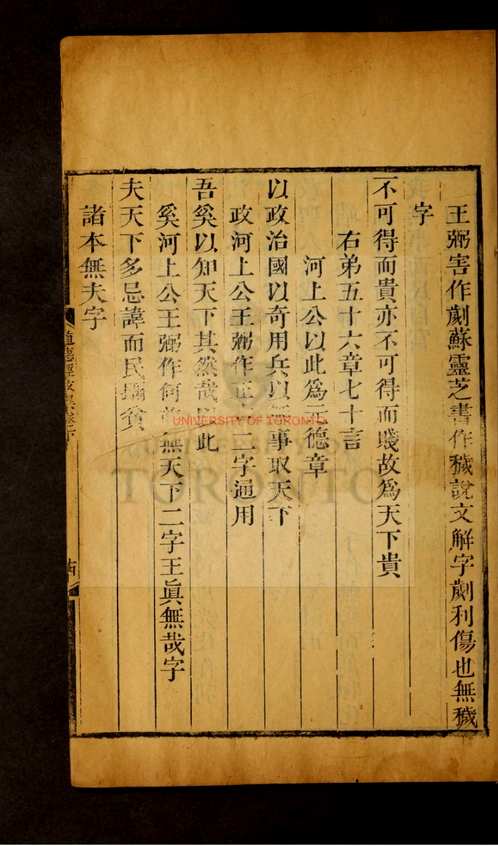 王弼害作劌蘇靈芝書作穢說文解字劌利傷也無穢
字
不可得而貴亦不可得而賤故爲天下貴
右弟五十六章七十言
河上公以此爲玄德章
以政治國以奇用兵以無事取天下
政河上公王弼作正二字通用
吾奚以知天下其然哉以此
奚河上公王弼作何並無天下二字王眞無哉字
夫天下多忌諱而民彌貧
諸本無夫字
道德經攷異卷下
UNIVERSITY OF TORONTO
TORONTO